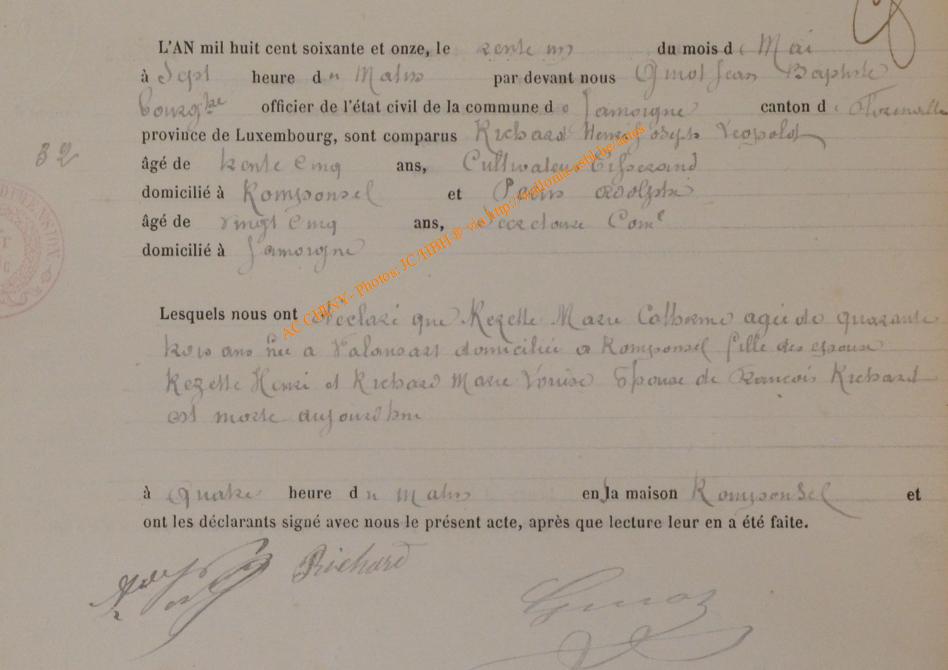 L'AN mil huit cent soixante et onze, le trente un du mois de Mai
à Sept heure du Matin par devant nous Guiot Jean Baptiste
Bourgtre officier de l'état civil de la commune de Jamoigne canton de Florenville
province de Luxembourg, sont comparus Richard Henri Joseph Léopold
32
âgé de trente cinq ans, Cultivateur Tisserand
domicilié à Romponsel et Adolphe
âgé de vingt cinq ans, Secrétaire Come
domicilié à Jamoigne
AC CHINY - Photos: JC/HBH © via http://wallonica
Lesquels nous ont déclaré que Rezette Marie Catherine agée de quarante
trois ans née a Valansart domiciliée a Romponsel fille des epoux
Rezette Henri et Richard Marie Louise Epouse de Francois Richard
est morte aujourdhui
à Quatre heure du matin en la maison Romponsel et
ont les déclarants signé avec nous le présent acte, après que lecture leur en a été faite.
Richard
Guiot